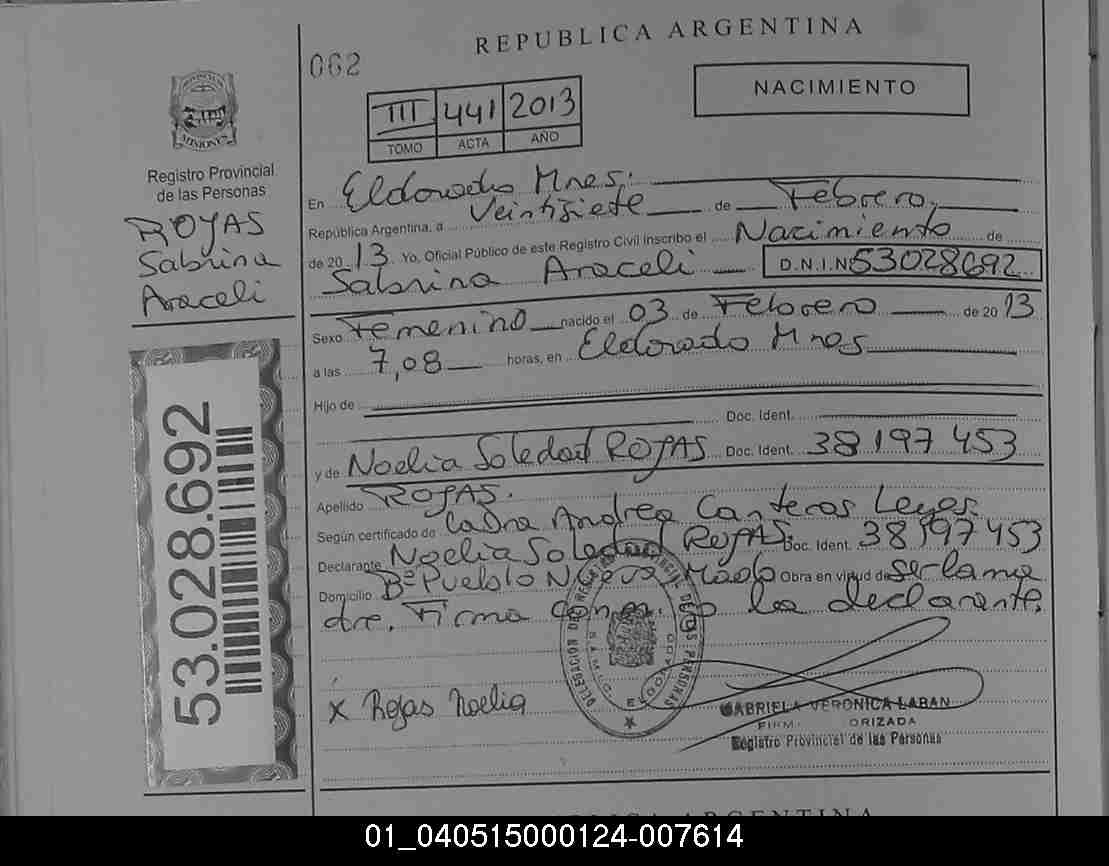 REPUBLICA ARGENTINA
062
NACIMIENTO
III 441 2013
TOMO ACTA AÑO
PROVINCIA DE MISIONES
Registro Provincial
de las Personas
ROJAS
Sabrina
Araceli
53.028.692
En Eldorado Mnes.
República Argentina, a Veintisiete de Febrero
de 2013. Yo, Oficial Público de este Registro Civil inscribo el Nacimiento de
Sabrina Araceli D.N.I.Nº 53028692
Sexo Femenino nacido el 03 de Febrero de 2013
a las 7,08 horas, en Eldorado Mnes
Hijo de
Doc. Ident.
y de Noelia Soledad ROJAS Doc. Ident. 38197453
Apellido ROJAS.
Según certificado de la Dra Andrea Canteros Leyes.
Declarante Noelia Soledad ROJAS. Doc. Ident. 38197453
Domicilio Bº Pueblo Nuevo Mado Obra en virtud de ser la ma
dre. Firma la declarante.
x Rojas Noelia
ELDORADO
GABRIELA VERONICA LABAN
FIRM ORIZADA
Registro Provincial de las Personas
01_040515000124-007614